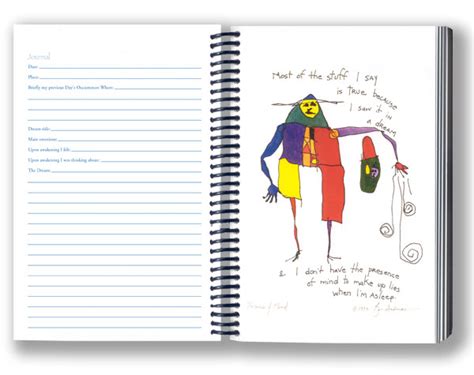 Journal
Date:
Place:
Briefly my previous Day's Occurrences Where:
Dream title:
Main emotions:
Upon awakening I felt:
Upon awakening I was thinking about:
The Dream:
Most of the stuff I say
is true because
I saw it in
a dream
& I don't have the presence
of mind to make up lies
when I'm Asleep
Presence of Mind